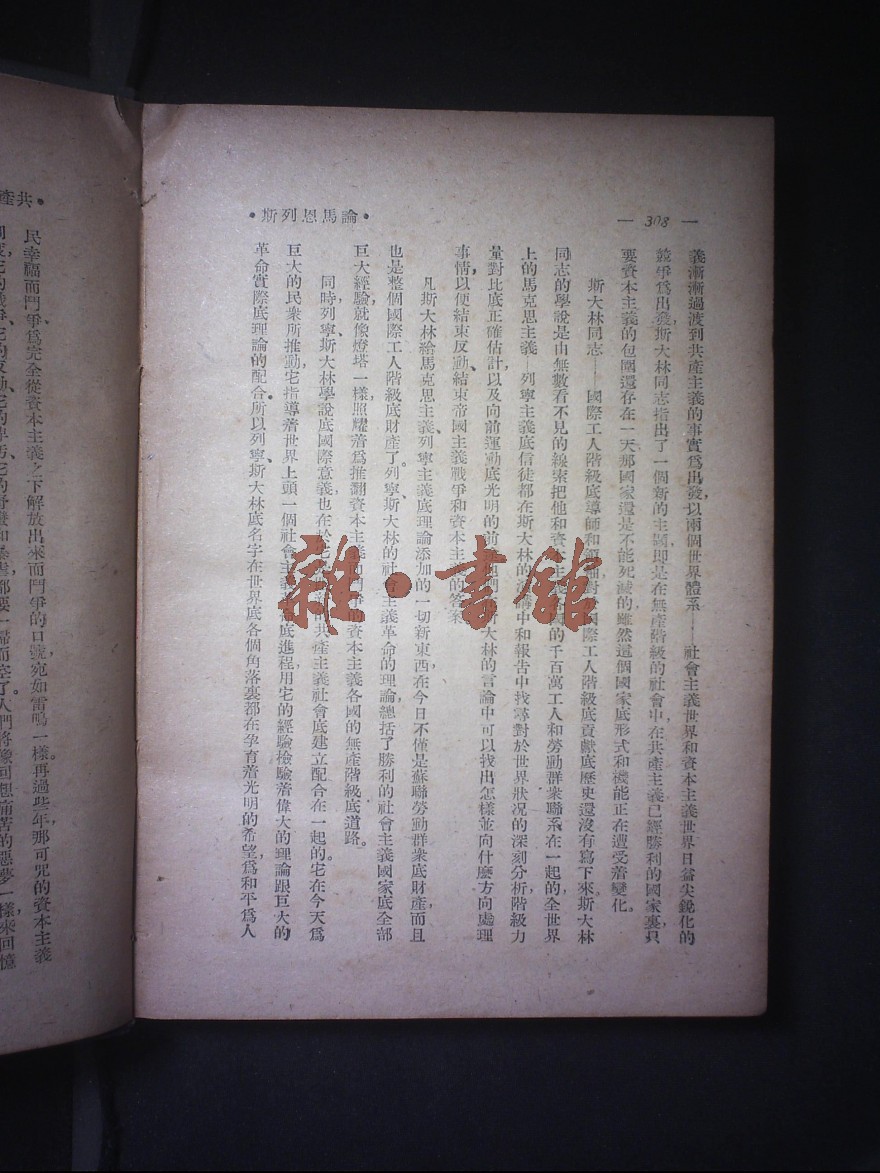 — 308 —
•斯列恩馬論•
義漸漸過渡到共產主義的事實爲出發，以兩個世界體系——社會主義世界和資本主義世界日益尖銳化的
競爭爲出發，斯大林同志指出了一個新的主題，即是在無產階級的社會中，在共產主義已經勝利的國家裏，只
要資本主義的包圍還存在一天，那國家還是不能死滅的，雖然這個國家底形式和機能正在遭受着變化。
斯大林同志——國際工人階級底導師和領袖，對國際工人階級底貢獻底歷史還沒有寫下來，斯大林
同志的學說是由無數看不見的線索把他和資本主義國的千百萬工人和勞動群衆聯系在一起的，全世界
上的馬克思主義——列寧主義底信徒都在斯大林的演講中和報告中找尋對於世界狀況的深刻分析，階級力
量對比底正確估計，以及向前運動底光明的前景，他們在斯大林的言論中可以找出怎樣並向什麼方向處理
事情，以便結束反動、結束帝國主義戰爭和資本主義的答案。
凡斯大林給馬克思主義、列寧主義底理論添加的一切新東西，在今日不僅是蘇聯勞動群衆底財產，而且
也是整個國際工人階級底財產了。列寧、斯大林的社會主義革命的理論，總括了勝利的社會主義國家底全部
巨大經驗，就像燈塔一樣，照耀着爲推翻資本主義而鬥爭的資本主義各國的無產階級底道路。
同時，列寧、斯大林學說底國際意義也在於它 的共產主義社會底建立配合在一起的。它在今天爲
巨大的民衆所推動，它指導着世界上頭一個社會主義 底進程，用它的經驗檢驗着偉大的理論跟巨大的
革命實際底理論的配合。所以列寧、斯大林底名字在世界底各個角落裏都在孕育着光明的希望，爲和平爲人
•共產
民幸福而鬥爭，爲完全從資本主義之下解放出來而鬥爭的口號，宛如雷鳴一樣。再過些年，那可咒的資本主義
都要一掃而空了。人們將像回想痛苦的惡夢一樣，來回憶
雜·書館